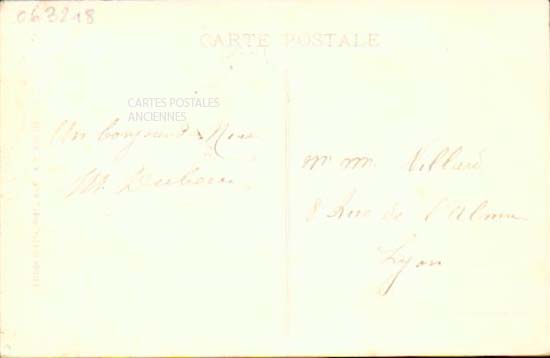 063218
CARTE POSTALE
CARTES POSTALES
ANCIENNES
Un bonjour de Nice
M.
Mr Mme Villard
8 Rue de l'Alma
Lyon